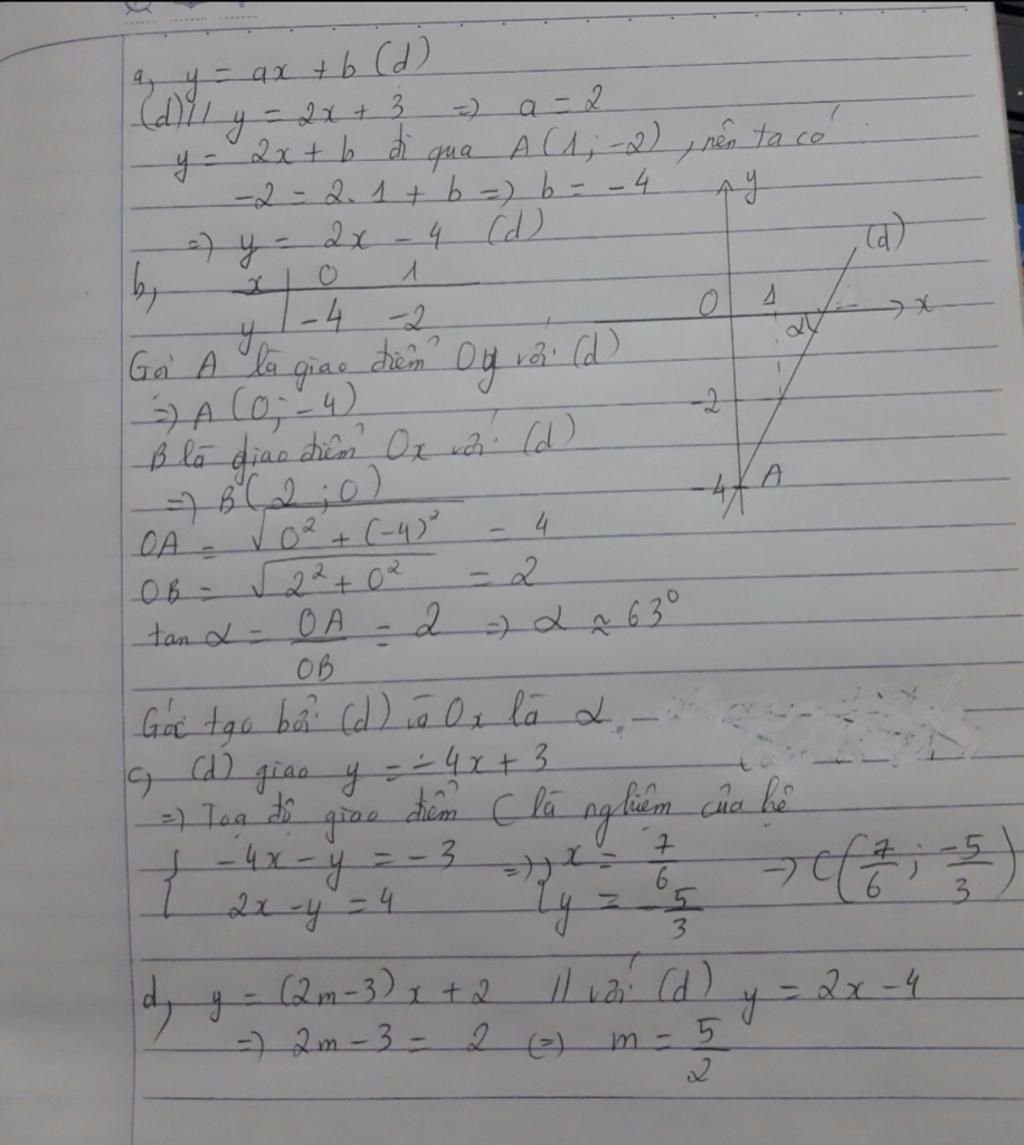 a, y = ax + b (d)
(d) // y = 2x + 3 => a = 2
y = 2x + b đi qua A(1; -2), nên ta có
-2 = 2.1 + b => b = -4
=> y = 2x - 4 (d)
b, x | 0 1
y | -4 -2
y
(d)
O 1 α x
-2
-4 A
Gọi A là giao điểm Oy với (d)
=> A(0; -4)
B là giao điểm Ox với (d)
=> B(2; 0)
OA = √(0² + (-4)²) = 4
OB = √(2² + 0²) = 2
tan α = OA/OB = 2 => α ≈ 63°
Góc tạo bởi (d) và Ox là α
c, (d) giao y = -4x + 3
=> Toạ độ giao điểm C là nghiệm của hệ
{ -4x - y = -3 => { x = 7/6 -> C(7/6; -5/3)
2x - y = 4 y = -5/3
d, y = (2m-3)x + 2 // với (d) y = 2x - 4
=> 2m - 3 = 2 (=) m = 5/2